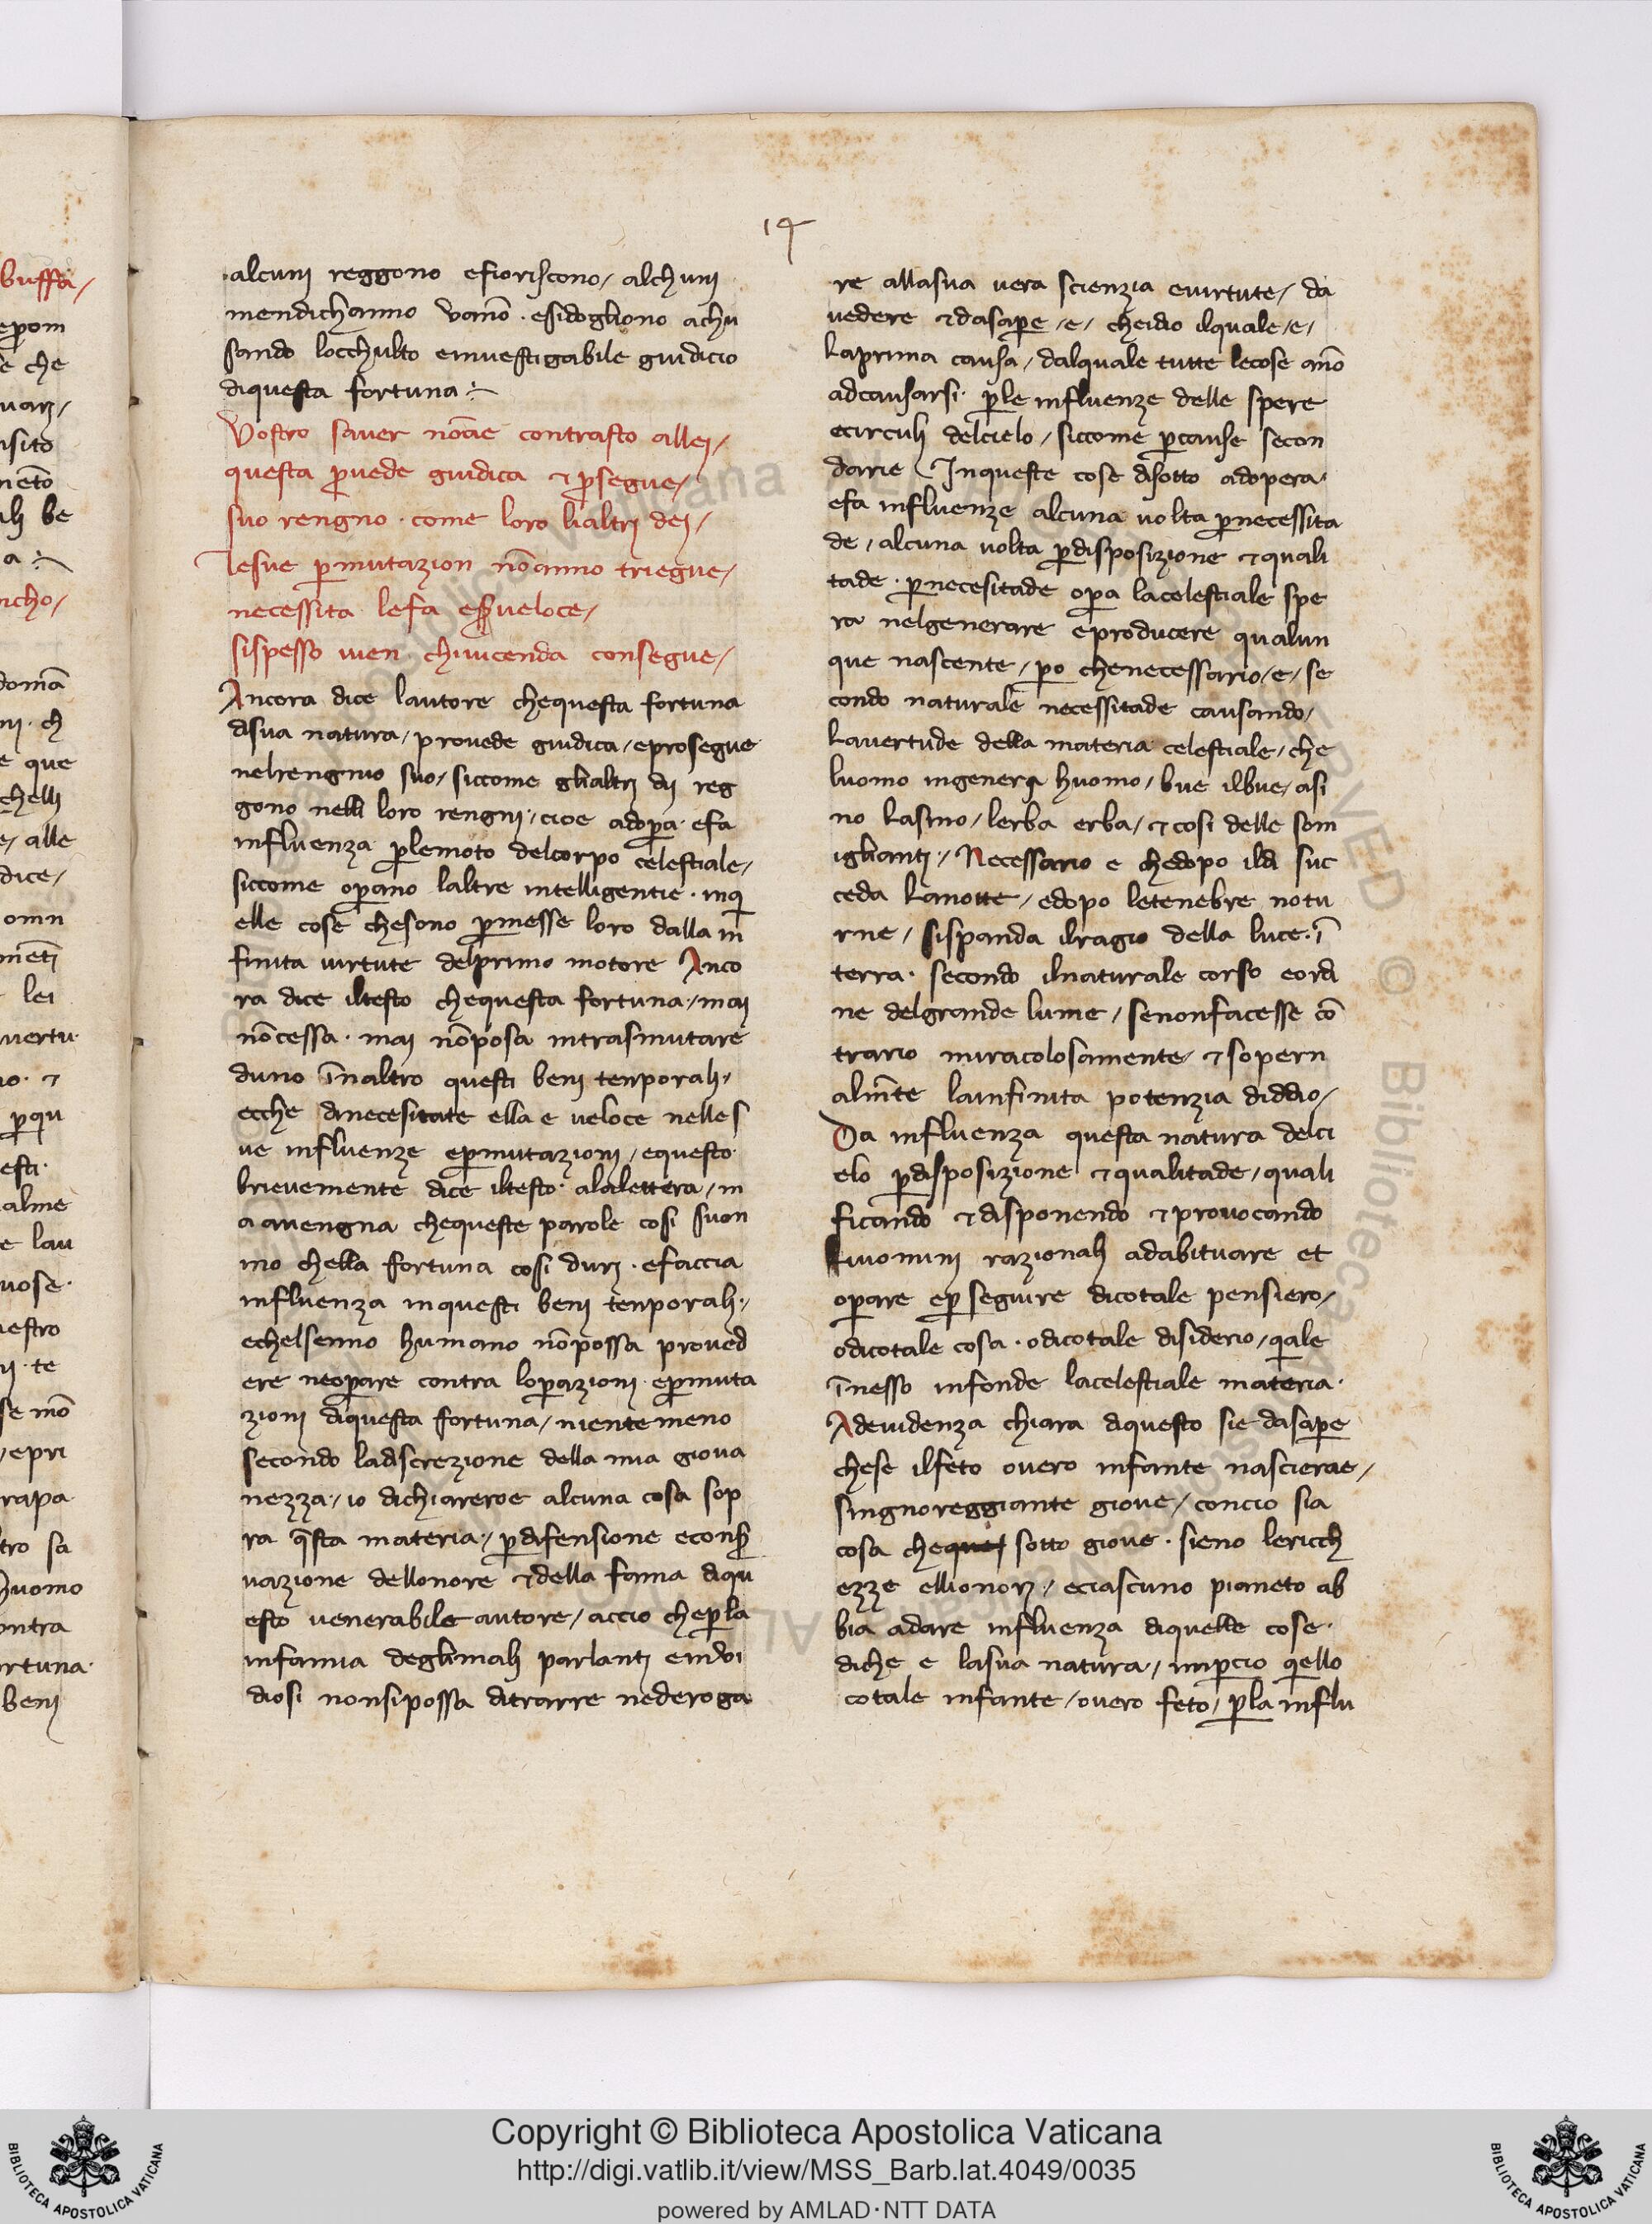 19
alcunj reggono efioriscono/ alchunj
mendichanno vanno. esidogliono achu
sando locchulto einuestigabile giudicio
diquesta fortuna
Vostro sauer nōae contrasto allej/
questa p̄uede giudica ⁊ p̄segue/
suo rengno. come loro lialtrj dej/
Lesue p̄mutazion nōanno triegue/
necessita lefa ess̄ueloce/
sispesso uien chiuicenda consegue/
Ancora dice lautore chequesta fortuna
disua natura/ prouede giudica/ eprosegue
nelrengnio suo/ siccome glialtrj dij reg
gono nelli loro rengnj/ cioe adop̄a. efa
influenza p̄lemoto delcorpo celestiale/
siccome op̄ano laltre intelligentie. inq̄
elle cose chesono p̄messe loro dalla in
finita uirtute delprimo motore Anco
ra dice iltesto chequesta fortuna/ maj
nōcessa. maj nōposa intrasmutare
duno īnaltro questi benj tenporalj/
ecche dinecesitate ella e ueloce nelles
ue influenze ep̄mutazionj/ equesto
brieuemente dice iltesto. alalettera/ m
a auengna chequeste parole cosi suon
ino chella ffortuna cosi durj. efaccia
influenza inquesti benj tenporalj/
echelsenno humano nōpossa proued
ere neop̄are contra lop̄azionj ep̄muta
zionj diquesta ffortuna/ nientemeno
secondo ladiscrezione della mia gioua
nezza/ io dichiareroe alcuna cosa sop
ra q̄sta materia/ p̄difensione econs̄
uazione dellonore ⁊della fama diqu
esto uenerabile autore/ accio chep̄la
infamia deglimalj parlantj einvi
diosi nonsipossa ditrarre nederoga
re allasua uera scienzia euirtute/ da
uedere ⁊dasap̄e/e/ cheidio ilquale/e/
laprima causa/ dalquale tutte lecose anō
adcausarsi. p̄le influenze delle spere
ecirculj delcielo/ siccome p̄cause secon
darie Inqueste cose disotto adopera
efa influenze alcuna uolta p̄necessita
de/ alcuna uolta p̄disposizione ⁊quali
tade. p̄necesitade op̄a lacelestiale spe
ra nelgenerare eproducere qualun
que nascente/ p̄o chenecessario/e/ se
condo naturale necessitade causando/
lauertude della materia celestiale/ che
luomo ingenera huomo/ bue ilbue/ asi
no lasino/ lerba erba/ ⁊cosi delle som
igliantj/ Necessario e chedopo ildi suc
ceda lanotte/ edopo letenebre notu
rne/ sispanda ilragio della luce. ī
terra. secondo ilnaturale corso eordi
ne delgrande lume/ senonfacesse cō
trario miracolosamente ⁊sopern
almēte lainfinita potenzia diddio/
Da influenza questa natura delci
elo p̄disposizione ⁊qualitade/ quali
ficando ⁊disponendo ⁊prouocando
liuominj razionalj adabituare et
op̄are ep̄seguire dicotale pensiero/
odicotale cosa. odicotale disiderio/ q̄ale
īnesso infonde lacelestiale materia.
Adeuidenza chiara diquesto sie dasap̄e
chese ilfeto ouero infante nascierae/
singnoreggiante gioue/ concio sia
cosa cheques sotto gioue. sieno lericch
ezze ellionorj/ eciascuno pianeto ab
bia adare influenza diquelle cose.
diche e lasua natura/ imp̄cio q̄ello
cotale infante/ ouero feto/ p̄la influ
Copyright © Biblioteca Apostolica Vaticana
http://digi.vatlib.it/view/MSS_Barb.lat.4049/0035
powered by AMLAD·NTT DATA
BIBLIOTECA APOSTOLICA VATICANA
BIBLIOTECA APOSTOLICA VATICANA